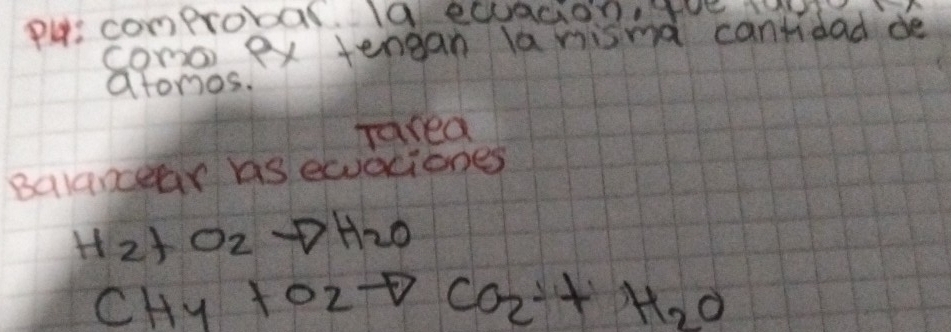 P4: comprobar la ecuación, que tanto Rx
como Px tengan la misma cantidad de
atomos.
Tarea
Balancear las ecuaciones
H2 + O2 → H2O
CH4 + O2 → CO2 + H2O